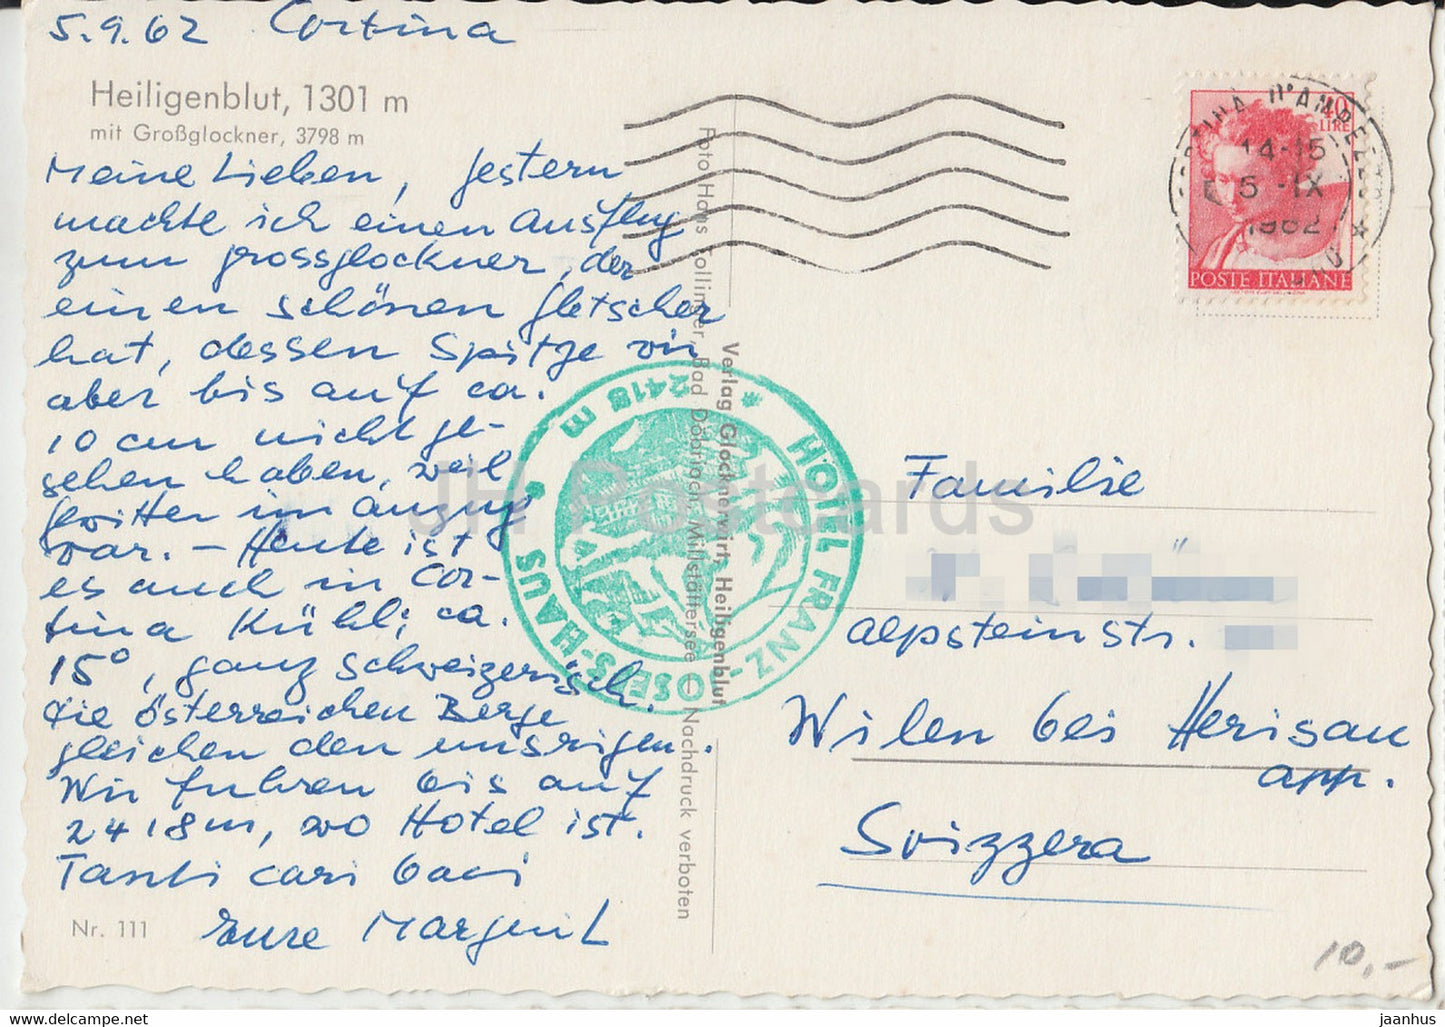 5.9.62 Cortina
Heiligenblut, 1301 m
mit Großglockner, 3798 m
Meine Lieben, gestern
machte ich einen Ausflug
zum grossglockner, der
einen schönen gletscher
hat, dessen Spitze wir
aber bis auf ca.
10 cm nicht ge-
sehen haben, weil
gwitter im anzug
war. – Heute ist
es auch in Cor-
tina Kühl; ca.
15°, ganz schweizerisch.
Die österreichen Berge
gleichen den unsrigen.
Wir fuhren bis auf
2418m, wo Hotel ist.
Tanti cari baci
Eure Margrit
Nr. 111
Foto Hans Tollinger, Bad Döbriach, Millstättersee — Nachdruck verboten
Verlag Glocknerwirt, Heiligenblut
* HOTEL FRANZ-JOSEFS-HAUS * 2418 m
CORTINA D'AMPEZZO
14-15
5-IX
1962
40
LIRE
POSTE ITALIANE
Familie
alpsteinstr.
Wilen bei Herisau
app.
Svizzera
10,-
JH Postcards
www.delcampe.net
jaanhus